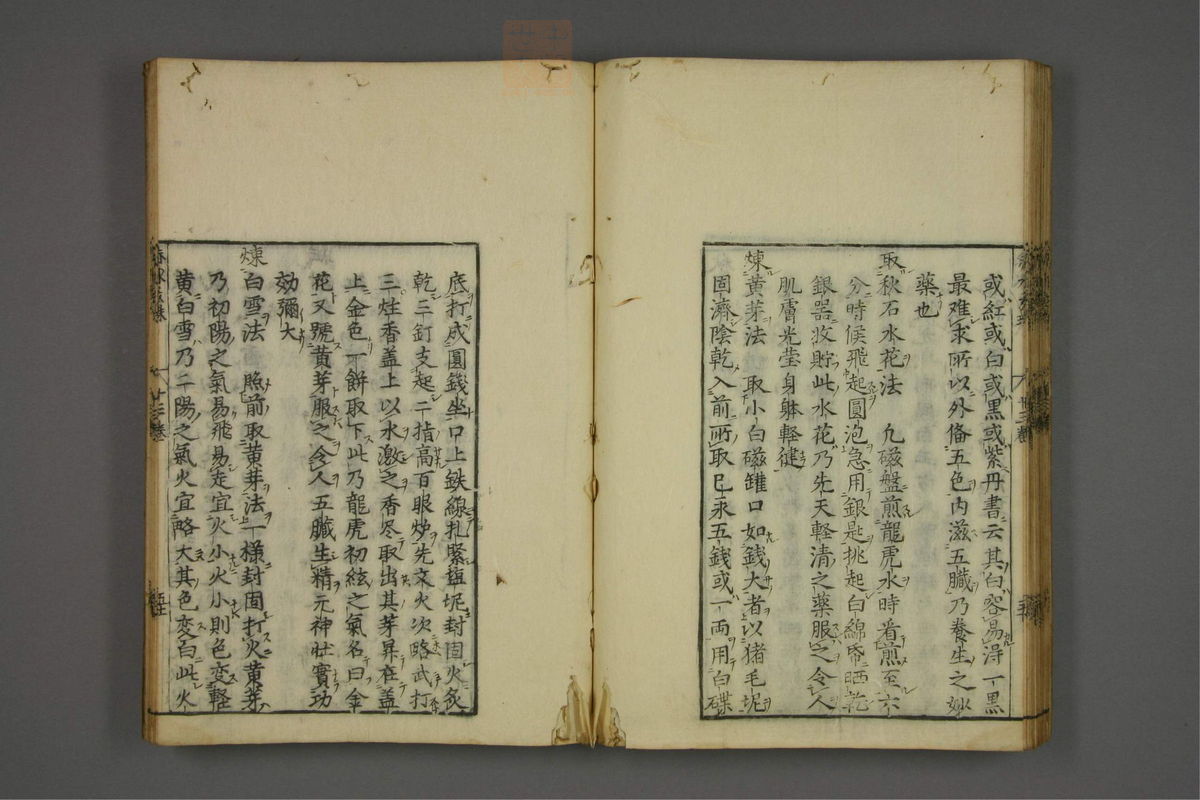 或紅或白或黒或紫丹書云其白容易淂一黒
最难求所以外俻五色内滋五臓乃養生之妙
藥也
取秋石水花法　凢磁盤煎龍虎水時看煎至六
分時候飛起圓泡急用銀匙挑起白綿帋晒乾
銀器收貯此水花乃先天軽清之藥服之令人
肌膚光莹身躰軽健
煉黄芽法　取小白磁罐口如錢大者以猪毛坭
固濟陰乾入前所取巳汞五錢或一両用白碟
底打成圓錢坐口上鉄線扎緊塩坭封固火炙
乾二釘支起二指高百眼炉先文火次略武打
三炷香盖上以水激之香尽取出其芽昇在盖
上金色一餅取下此乃龍虎初絃之氣名曰金
花又號黄芽服之令人五臓生精元神壮實功
効彌大
煉白雪法　照前取黄芽法一様封固打火黄芽
乃初陽之氣易飛易走宜火小火小則色变軽
黄白雪乃二陽之氣火宜略大其色变白此火